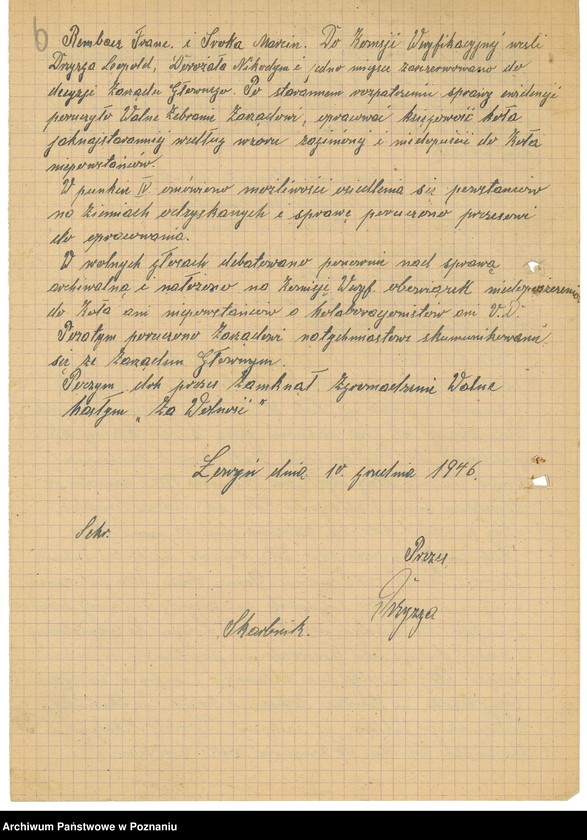 6
Rembacz Franc. i Sroka Marcin. Do Komisji Weryfikacyjnej weszli
Dryzga Leopold, Dorożała Nikodym i jedno miejsce zarezerwowano do
decyzji Zarządu Głównego. Po starannem rozpatrzeniu sprawy ewidencji
poruczyło Walne Zebranie Zarządowi, opracować księgowość koła
jaknajstaranniej według wzoru i niedopuścić do Koła
niepowstańców.
W punkcie IV omówiono możliwości osiedlenia się powstańców
na Ziemiach odzyskanych i sprawę poruczono prezesowi
do opracowania.
W wolnych głosach debatowano ponownie nad sprawą
archiwalną i nałożono na Komisję Weryf. obowiązek niedopuszczenia
do Koła ani niepowstańców a kolaboracjonistów ani V.D.
Pozatym poruczono Zarządowi natychmiastowe skomunikowanie
się ze Zarządem Głównym.
Poczym dh prezes zamknął Zgromadzenie Walne
hasłym „Za Wolność"
dnia 10 grudnia 1946.
Sekr.
Prezes
Dryzga
Skarbnik.
Archiwum Państwowe w Poznaniu